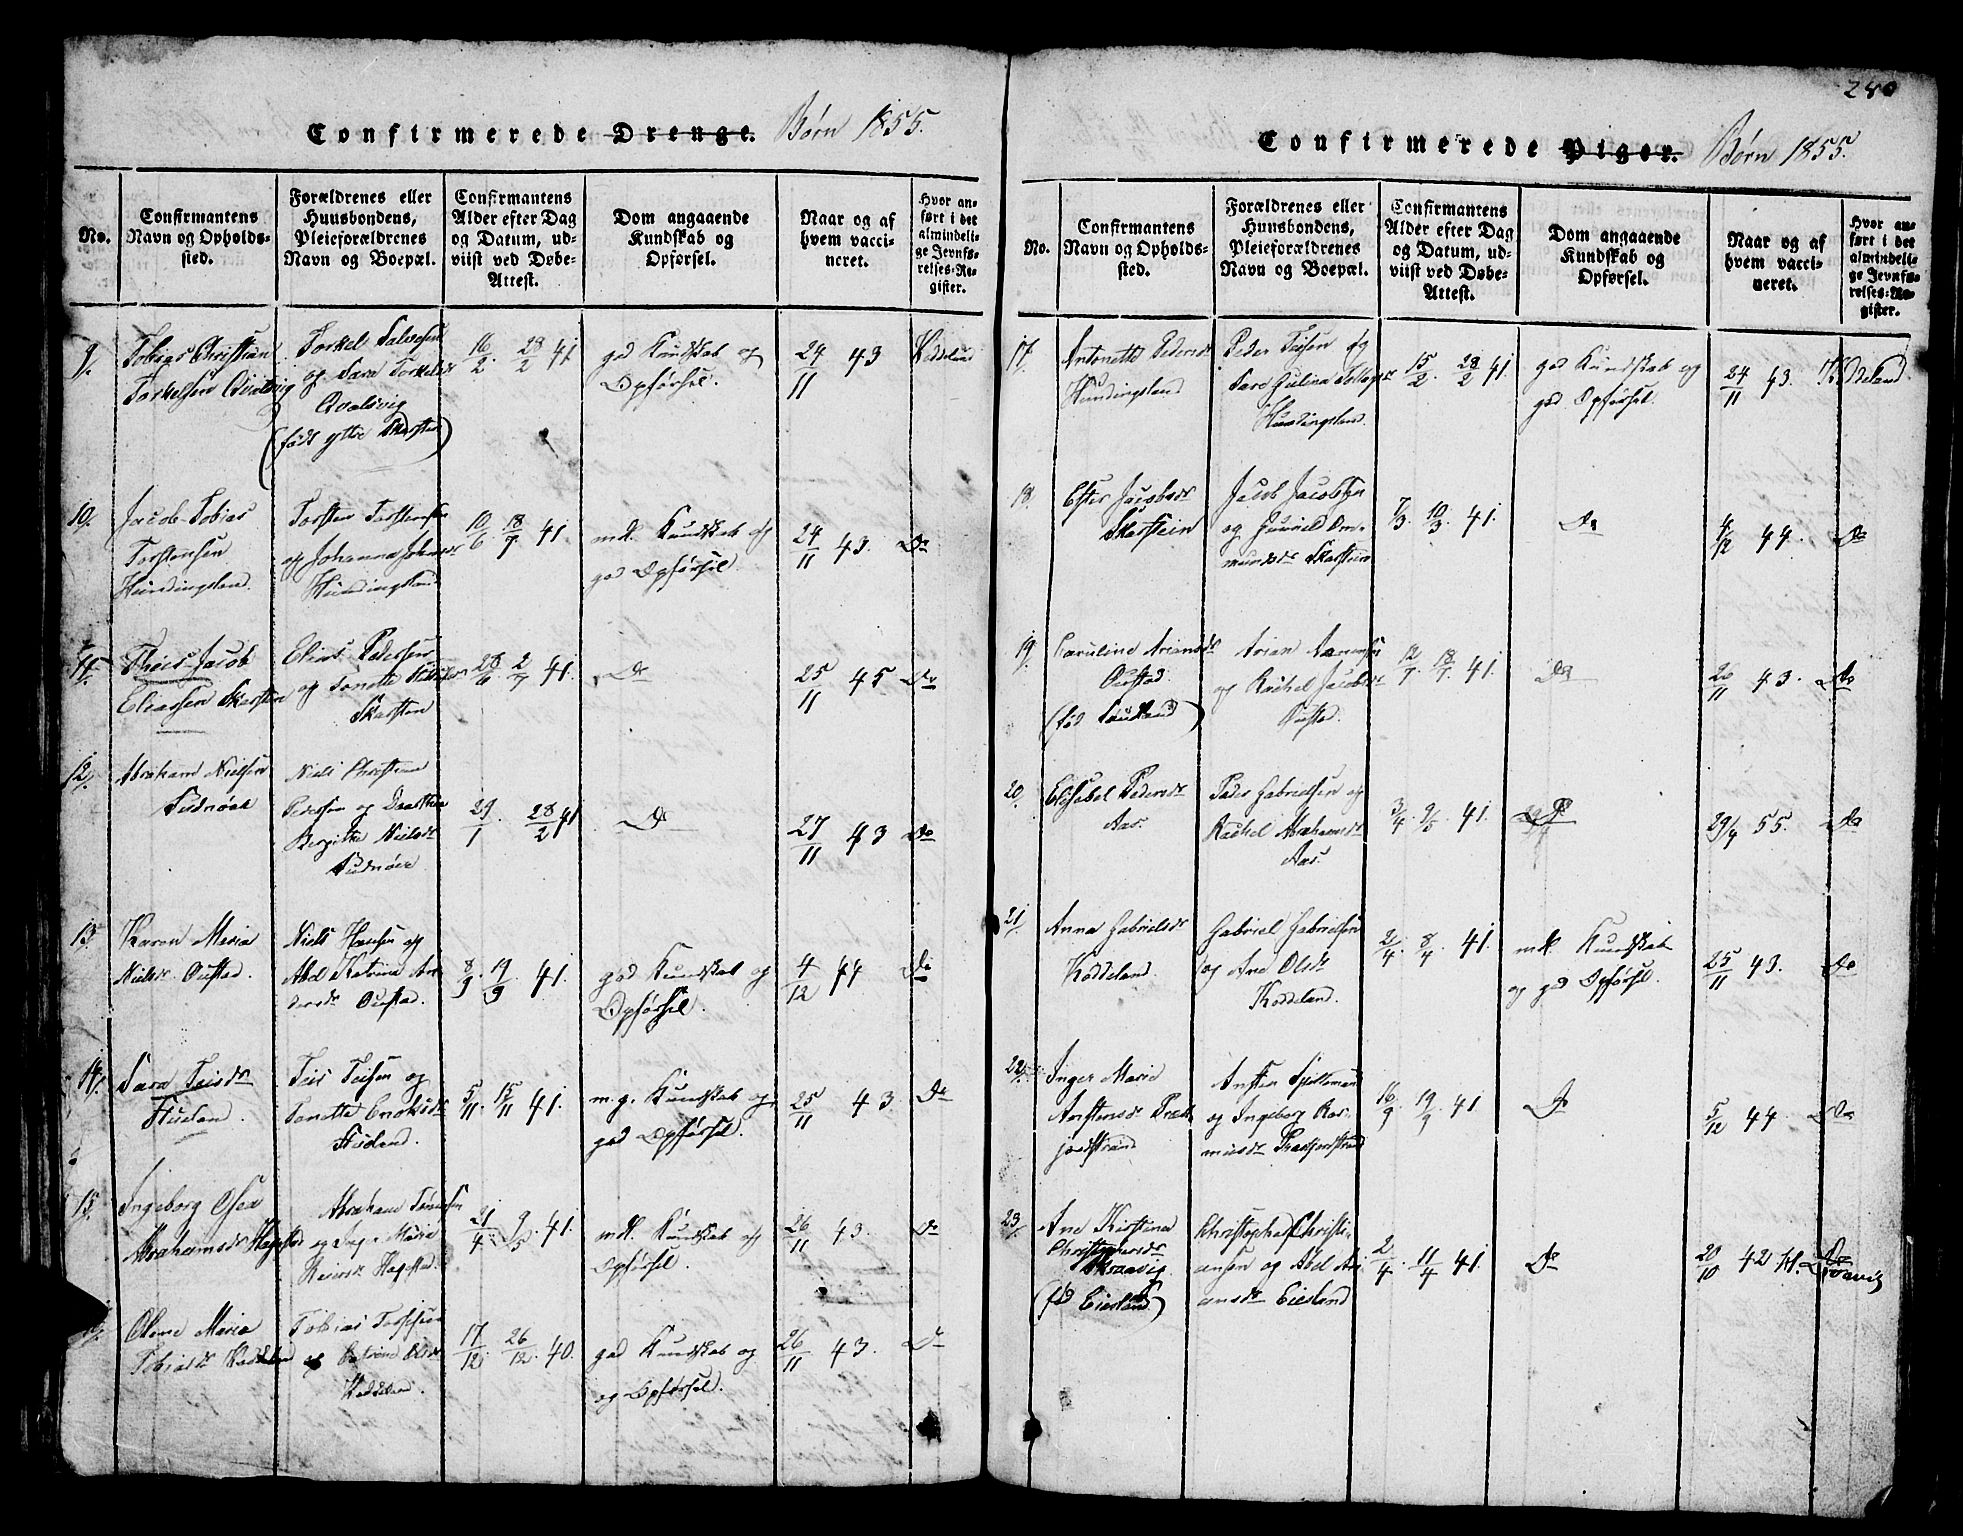 280
Confirmerede Drenge. Børn 1855.
No.
Confirmantens Navn og Opholdssted.
Forældrenes eller Huusbondens, Pleieforældrenes Navn og Boepæl.
Confirmantens Alder efter Dag og Datum, udviist ved Døbe-Attest.
Dom angaaende Kundskab og Opførsel.
Naar og af hvem vaccineret.
Hvor anført i det almindelige Jevnførelses-Register.
9. Tobias Christian
Torkelsen Qvalsvig
Torkel Salvesen
og Sara Torkelsdr
Qvalsvig
(født ytte Skarsten)
16/2. 28/2 41.
god Kundskab og
Opførsel.
24/11 43
Koddeland
10. Jacob Tobias
Torstensen
Hundingsland.
Torsten Torstensen
og Johanna
Hundingsland
10/6. 18/7 41.
mdl. Kundskab og
god Opførsel.
24/11 43. Do
11. Theis Jacob
Eliassen Skarsten
Elias Pedersen
og Tonette
Skarsten
28/6 2/7 41.
Do
25/11 45 Do
12. Abraham Nielsen
Niels Christian
Pedersen og
Bergitte Nielsdr
29/1. 28/2 41
Do
27/11 43 Do
13. Karen Maria
Nielsdr Oustad.
Niels Hansen og
Abel Katrina An-
dersdr Oustad.
8/9. 19/9 41.
god Kundskab og
Opførsel.
4/12 44 Do
14. Sara Teisdr
Teis Teisen og
Tonette Enoksdr
5/11. 15/11 41.
m. g. Kundskab og
god Opførsel.
25/11 43 Do
15. Ingeborg Osea
Abrahamsdr Hagestad
Abraham Tønnesen
og Inger Marie
Reiersdr Hagestad.
21/4. 9/5. 41.
mdl. Kundskab og
Opførsel.
26/11 43. Do
Olene Maria
Tobiasdr Koddeland
Tobias
og Olsdr
Koddeland.
17/12. 26/12. 40.
god Kundskab og
og Opførsel.
26/11 43. Do
Confirmerede Piger. Børn 1855.
No.
Confirmantens Navn og Opholdssted.
Forældrenes eller Huusbondens, Pleieforældrenes Navn og Boepæl.
Confirmantens Alder efter Dag og Datum, udviist ved Døbe-Attest.
Dom angaaende Kundskab og Opførsel.
Naar og af hvem vaccineret.
Hvor anført i det almindelige Jevnførelses-Register.
17. Antonette Pedersdr
Hundingsland
Peder Teisen og
Sara Gulina
Hundingsland.
15/2. 28/2 41.
god Kundskab og
god Opførsel.
24/11 43. Koddeland.
18. Ester Jacobsdr
Skarstein
Jacob Jacobsen
og Gunild Om-
mundsdr Skarstein
7/3. 10/3. 41.
Do
4/12 44. Do
19. Caroline Ariansdr
Oustad.
(fød )
Arian Aanensen
og Rachel Jacobsdr
Oustad.
12/7. 18/7. 41.
Do
26/11 43. Do
20. Elisabet Pedersdr
Aas.
Peder Gabrielsen og
Rachel Abrahamsdr
Aas.
3/4. 9/5. 41.
Do
29/4 55. Do
21. Anna Gabrielsdr
Koddeland.
Gabriel Gabrielsen
og Ane Olsdr
Koddeland.
2/4. 8/4. 41.
mdl. Kundskab
og god Opførsel.
25/11 43. Do
22. Inger Marie
Anstensdr Præst-
jordstrand
Ansten Spillemand
og Ingeborg Ras-
musdr Præstjordstrand
16/9. 19/9. 41
Do
5/12 44. Do
23. Ane Kirstina
Christophersdr
Skraavig
(fød Eiesland)
Christopher Christi-
ansen og Abel Ari-
ansdr Eiesland
2/4. 11/4. 41.
Do
20/10 42 Do